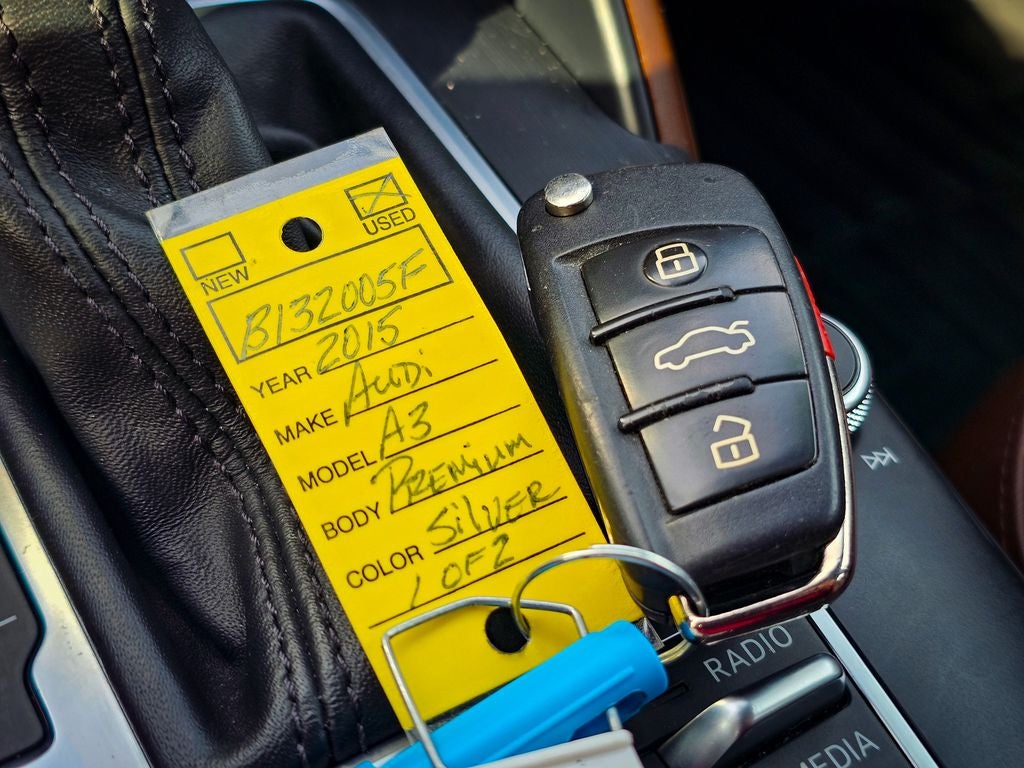 NEW USED
B132005F
YEAR 2015
MAKE AUDi
MODEL A3
BODY PREMiUM
COLOR SiLVER
1 OF 2
RADIO
MEDIA